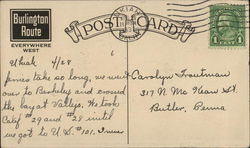 Burlington
Route
EVERYWHERE
WEST
POST CARD
UKIAH
1 CENT 1
Ukiah 4/28
Ferries take so long, we went
over to Berkeley and around
the bay at Vallejo. We took
Calif #29 and #28 until
we got to U.S. #101.
Carolyn Troutman
317 N. Mc Kean St.
Butler, Penna